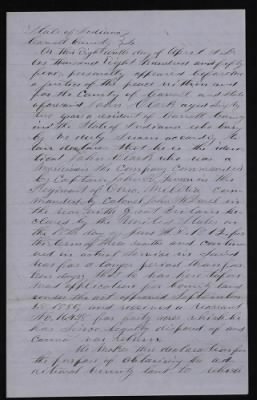 State of Indiana
Carroll County Ss
On this eighteenth day of April A.D.
one thousand eight hundred and fifty
five, personally appeared before me
a justice of the peace within and
for the County of Carroll and state
aforesaid John Clark aged
years a resident of Carroll County
in the State of Indiana who being
duly sworn according to
law declares that he is the iden-
tical John Clark who was a
in the Company commanded
by Captain John in the
Regiment of Ohio Militia com-
manded by Colonel John in
the war with Great Britain de-
clared by the United States on
the 18th day of June A.D. 1812 for
the term of three months and contin-
ued in actual service in said
war for a longer period than four-
teen days that he has heretofore
made application for bounty land
under the act approved September
28 1850 and received a Warrant
No. for forty acres which he
has since legally disposed of and
cannot now return
He makes this declaration for
the purpose of obtaining the add-
itional bounty land to which